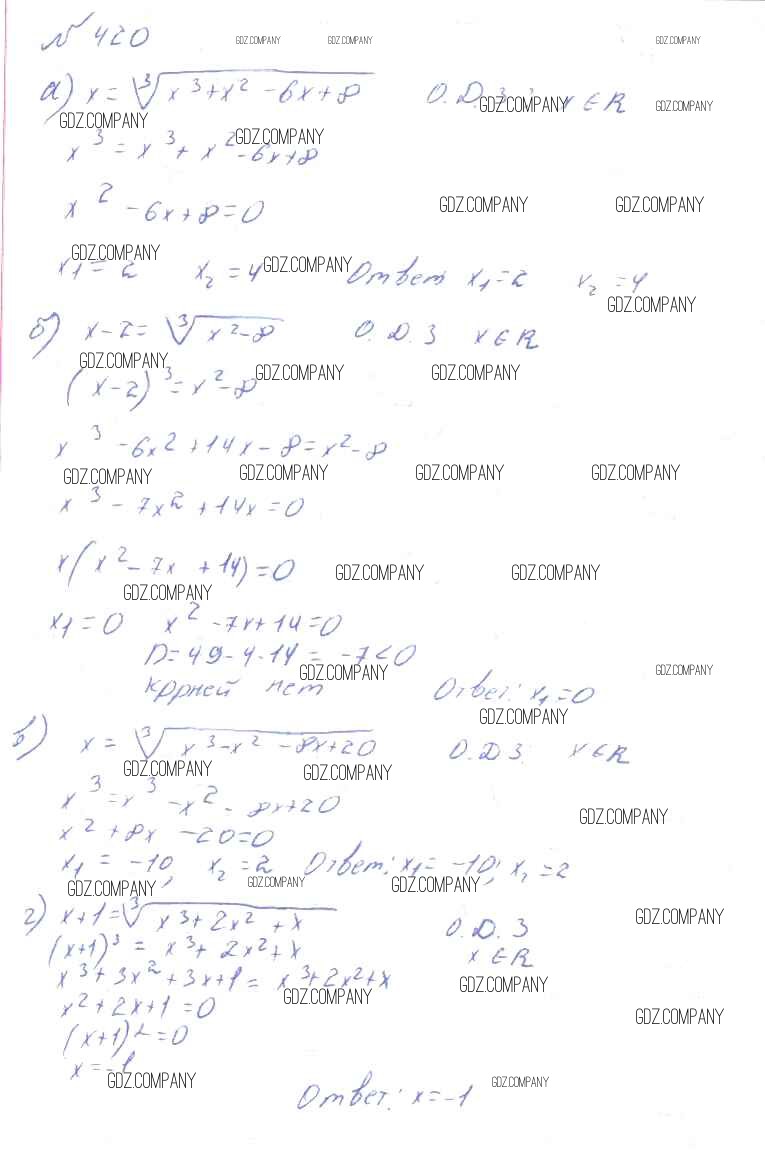 № 420
GDZ.COMPANY GDZ.COMPANY GDZ.COMPANY
а) x = ∛(x³+x²-6x+8) О.Д.З x∈R
GDZ.COMPANY GDZ.COMPANY GDZ.COMPANY GDZ.COMPANY
x³ = x³ + x² -6x+8
x² -6x+8=0
GDZ.COMPANY GDZ.COMPANY
GDZ.COMPANY GDZ.COMPANY
x₁=2 x₂=4 Ответ x₁=2 x₂=4
GDZ.COMPANY
б) x-2= ∛(x²-8) О.Д.З x∈R
GDZ.COMPANY GDZ.COMPANY GDZ.COMPANY
(x-2)³=x²-8
x³ -6x²+14x-8=x²-8
GDZ.COMPANY GDZ.COMPANY GDZ.COMPANY GDZ.COMPANY
x³ -7x²+14x=0
x(x²-7x +14)=0
GDZ.COMPANY GDZ.COMPANY GDZ.COMPANY
x₁=0 x²-7x+14=0
D=49-4·14= -7<0
GDZ.COMPANY GDZ.COMPANY
корней нет Ответ: x₁=0
GDZ.COMPANY
в) x= ∛(x³-x²-8x+20) О.Д.З. x∈R
GDZ.COMPANY GDZ.COMPANY
x³=x³ -x²- 8x+20
GDZ.COMPANY
x²+8x -20=0
x₁= -10, x₂=2 Ответ: x₁= -10; x₂=2
GDZ.COMPANY GDZ.COMPANY GDZ.COMPANY
г) x+1=∛(x³+2x²+x) О.Д.З
GDZ.COMPANY
(x+1)³ = x³+2x²+x x∈R
x³+3x²+3x+1= x³+2x²+x
GDZ.COMPANY GDZ.COMPANY
x²+2x+1=0
GDZ.COMPANY
(x+1)²=0
x=-1
GDZ.COMPANY GDZ.COMPANY
Ответ: x=-1